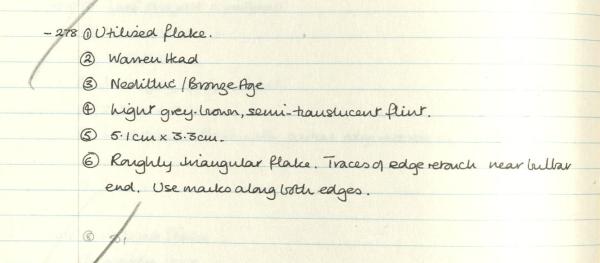 - 278 ① Utilised flake.
② Warren Head
③ Neolithic / Bronze Age
④ Light grey-brown, semi-translucent flint.
⑤ 5.1cm x 3.3cm.
⑥ Roughly triangular flake. Traces of edge retouch near bulbar
end. Use marks along both edges.